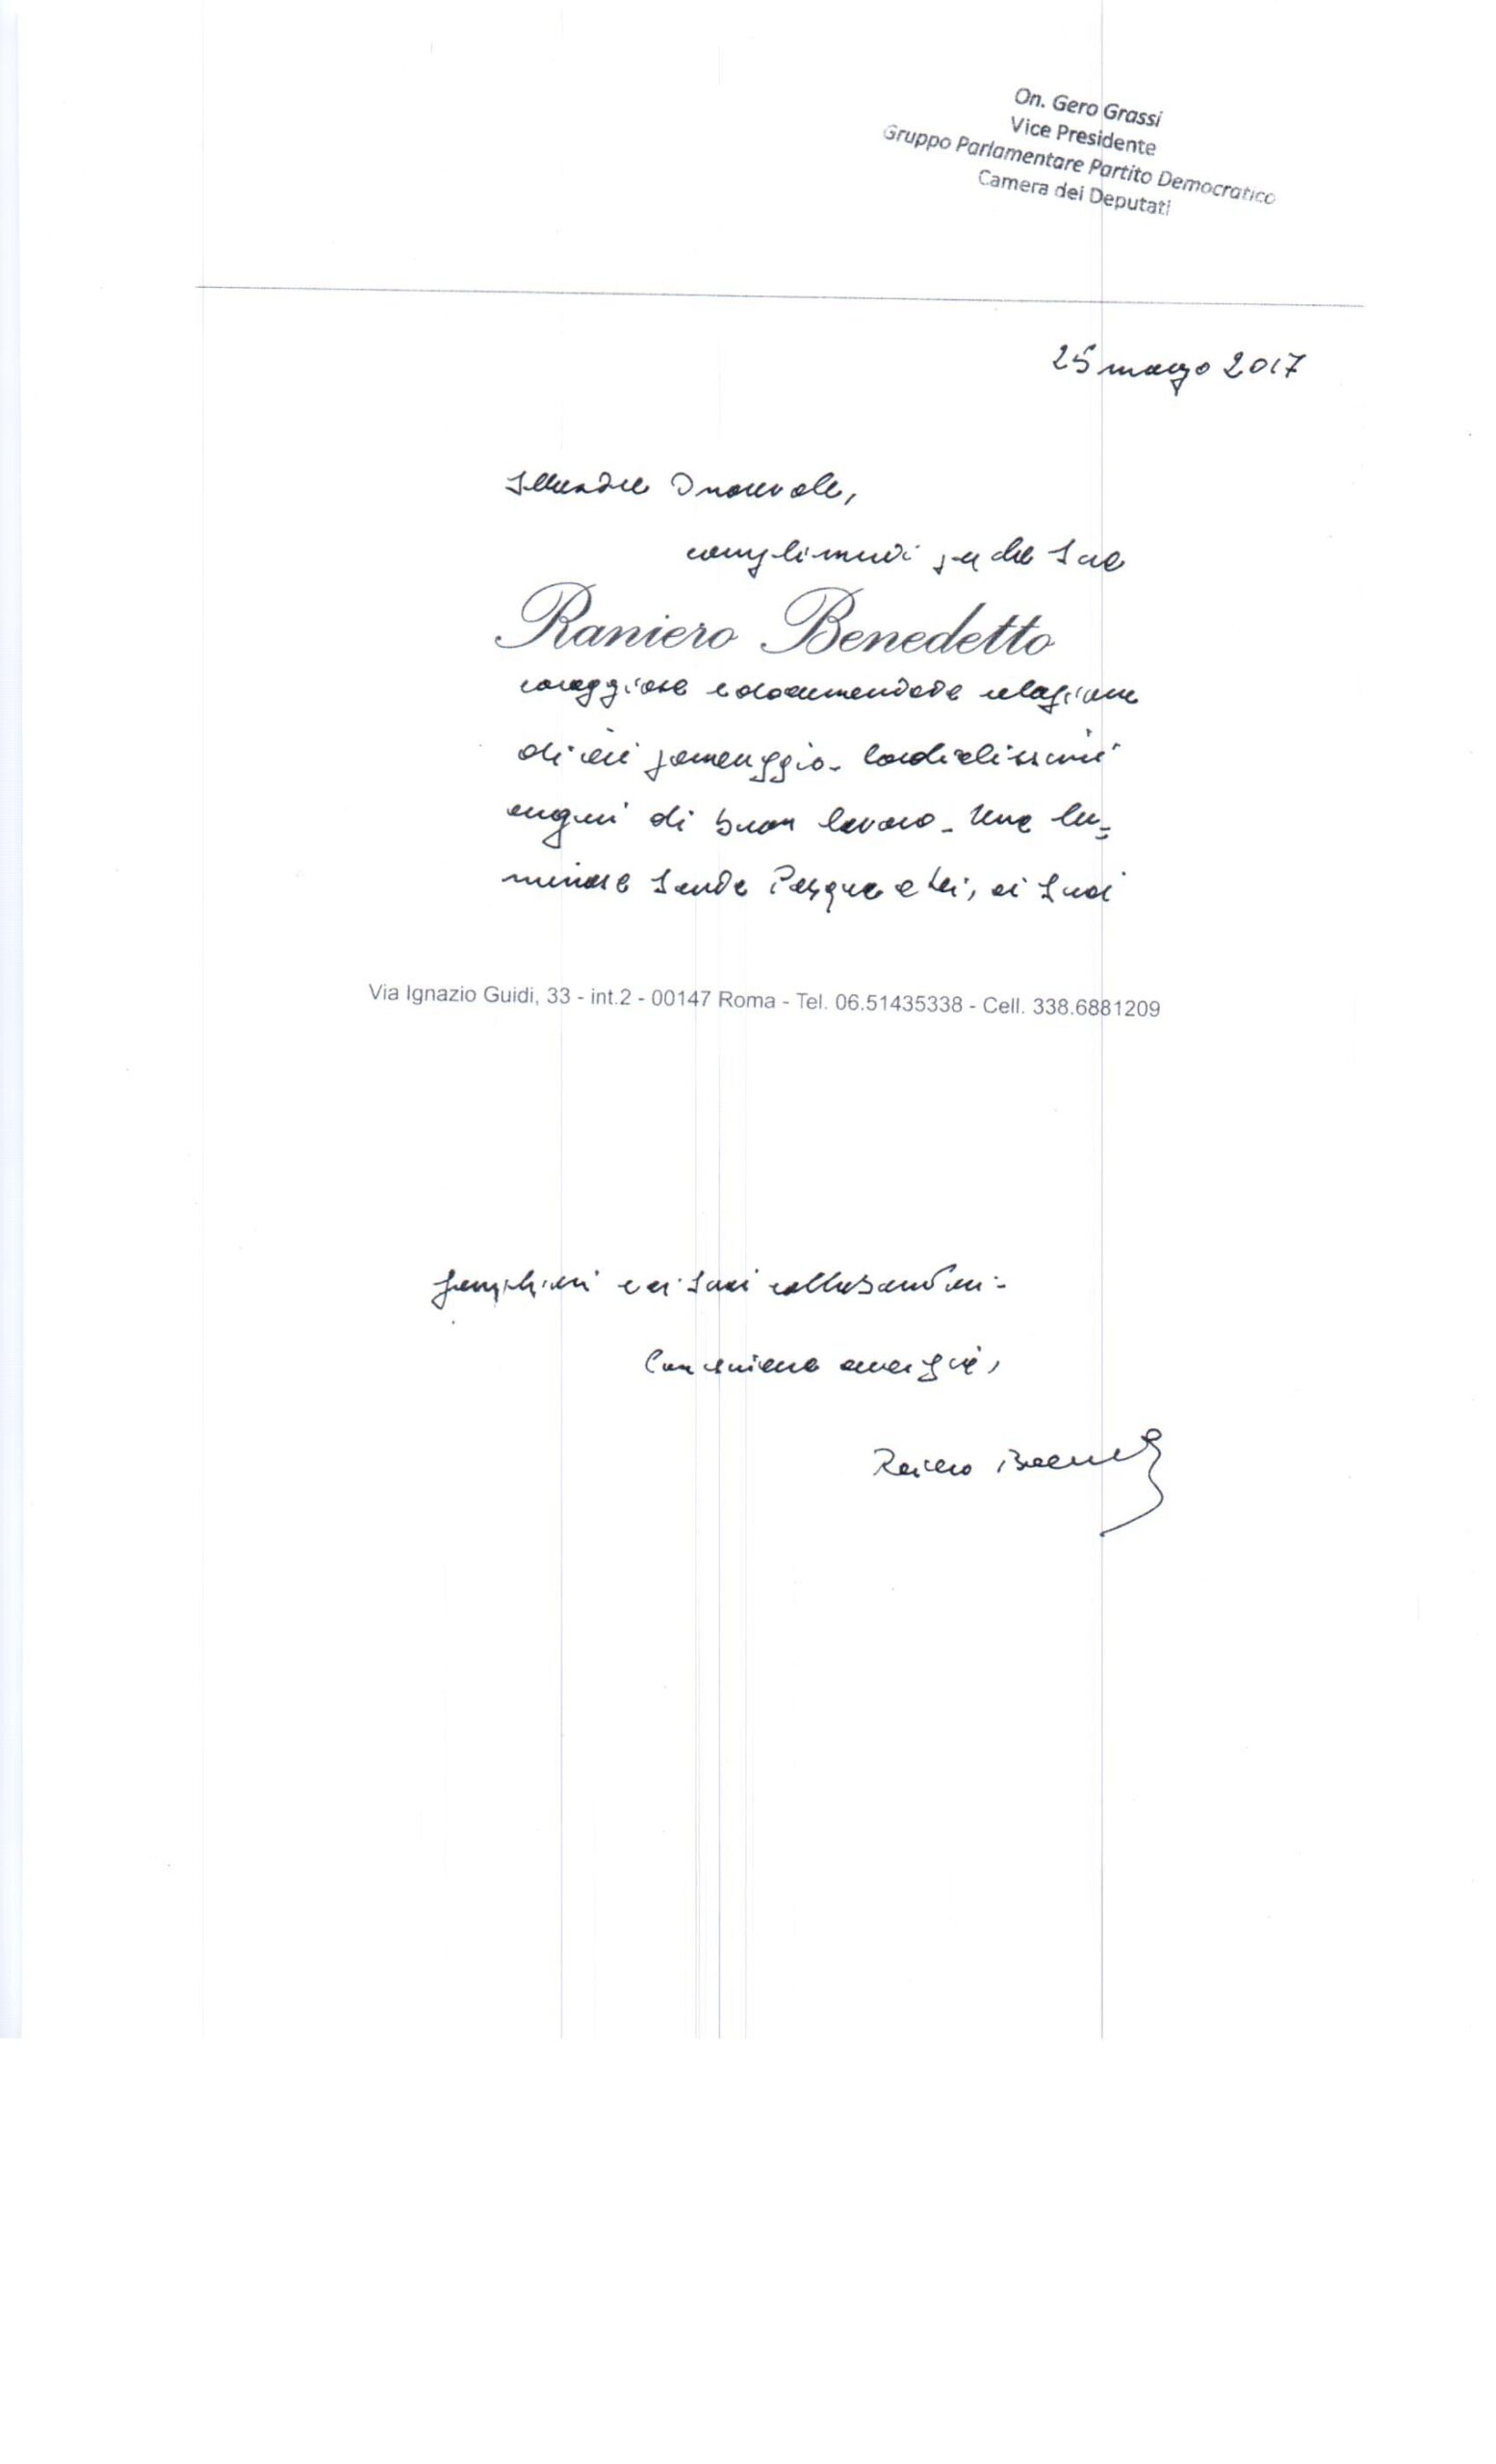 On. Gero Grassi
Vice Presidente
Gruppo Parlamentare Partito Democratico
Camera dei Deputati
25 marzo 2017
Illustre Onorevole,
complimenti per la Sua
Raniero Benedetto
coraggiosa e documentata relazione
di ieri pomeriggio. Cordialissimi
auguri di buon lavoro. Una lu=
minosa Santa Pasqua a Lei, ai Suoi
Via Ignazio Guidi, 33 - int.2 - 00147 Roma - Tel. 06.51435338 - Cell. 338.6881209
famigliari e ai Suoi collaboratori.
Con sincera amicizia,
Raniero Benedetto